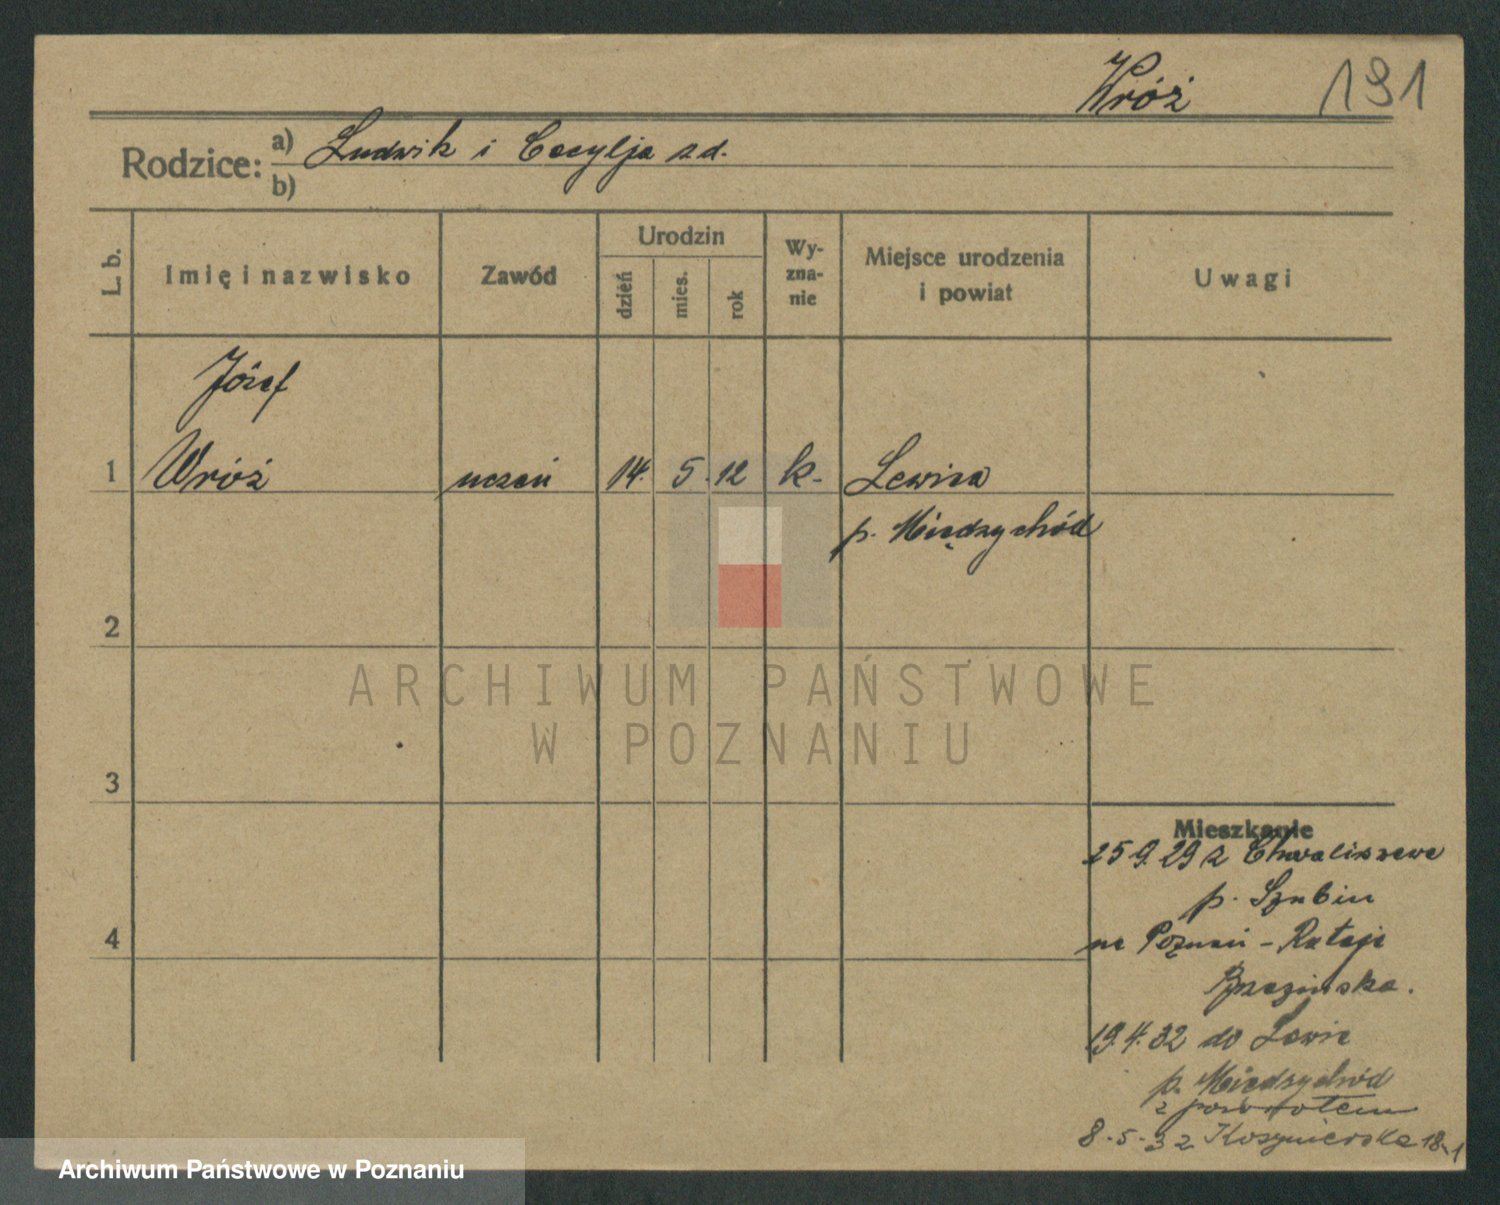 Wróż 191
Rodzice: a) Ludwik i Cecylja z d.
b)
L. b.
Imię i nazwisko
Zawód
Urodzin
dzień
mies.
rok
Wy-
zna-
nie
Miejsce urodzenia
i powiat
Uwagi
Józef
1 Wróż uczeń 14. 5. 12 k. Lewica
p. Międzychód
2
ARCHIWUM PAŃSTWOWE
W POZNANIU
3
Mieszkanie
25.9.29 z Chwaliszewa
p. Szubin
4
na Poznań - Rataje
Brzezińska.
19.4.32 do Lewic
p. Międzychód
z powrotem
8-5-32 Kosynierska 18-1
Archiwum Państwowe w Poznaniu